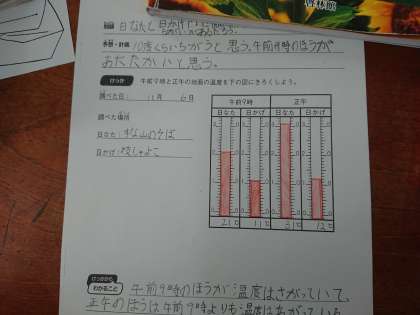 日なたと日かげに
予想・計画 10度くらいちがうと思う。午前9時のほうが
あたたかいと思う。
けっか 午前9時と正午の地面の温度を下の図にきろくしよう。
調べた日： 11月 6日
調べた場所
日なた：
日かげ：校しゃよこ
午前9時 正午
日なた 日かげ 日なた 日かげ
21℃ 11℃ 31℃ 12℃
けっかから
わかること 午前9時のほうが温度はさがっていて、
正午のほうは午前9時よりも温度はあがっていた